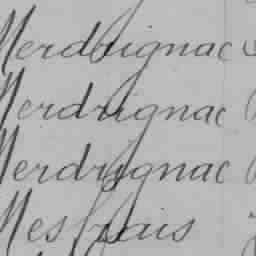 Merdrignac
Merdrignac
Merdrignac
Mesfrais